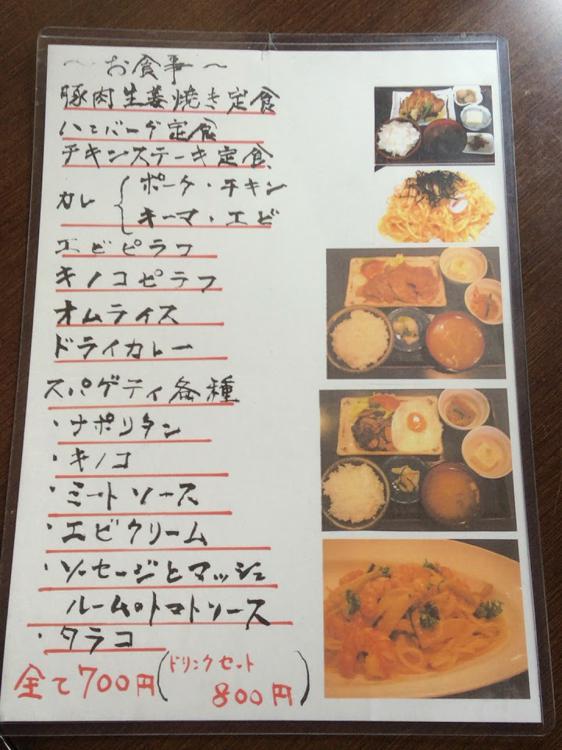 〜お食事〜
豚肉生姜焼き定食
ハンバーグ定食
チキンステーキ定食
カレー { ポーク・チキン
キーマ・エビ
エビピラフ
キノコピラフ
オムライス
ドライカレー
スパゲティ各種
・ナポリタン
・キノコ
・ミートソース
・エビクリーム
・ソーセージとマッシュ
ルームのトマトソース
・タラコ
全て700円(ドリンクセット
800円)